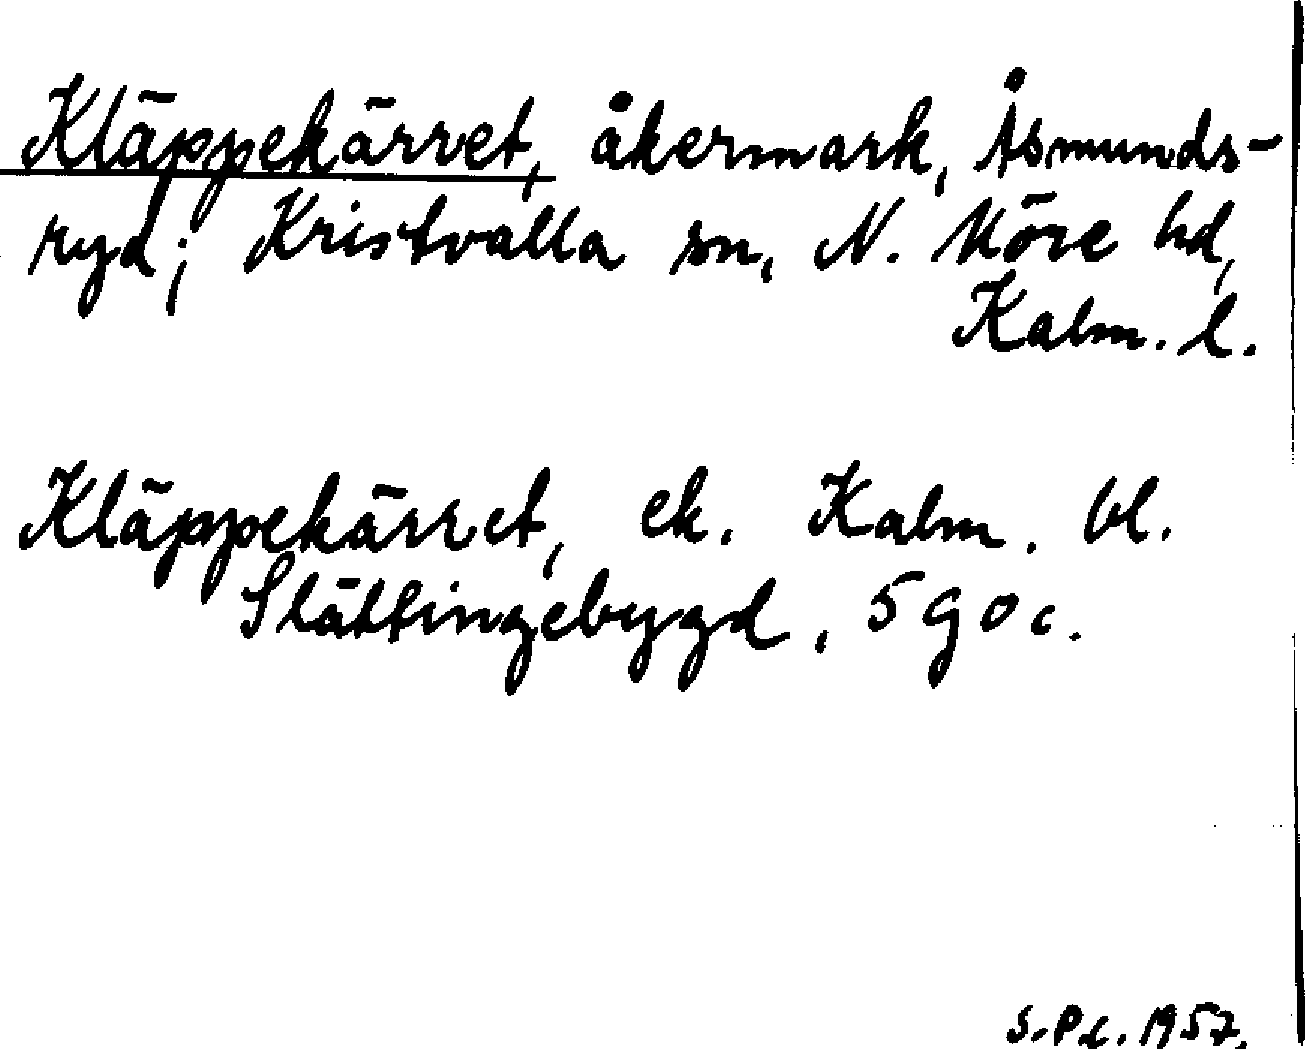 Kläppekärret, åkermark, Åsmunds-
ryd; Kristvalla sn, N. Möre hd,
Kalm. l.
Kläppekärret, ek. Kalm. bl.
Slättingebygd, 5 g o c.
S.P.L. 1957.